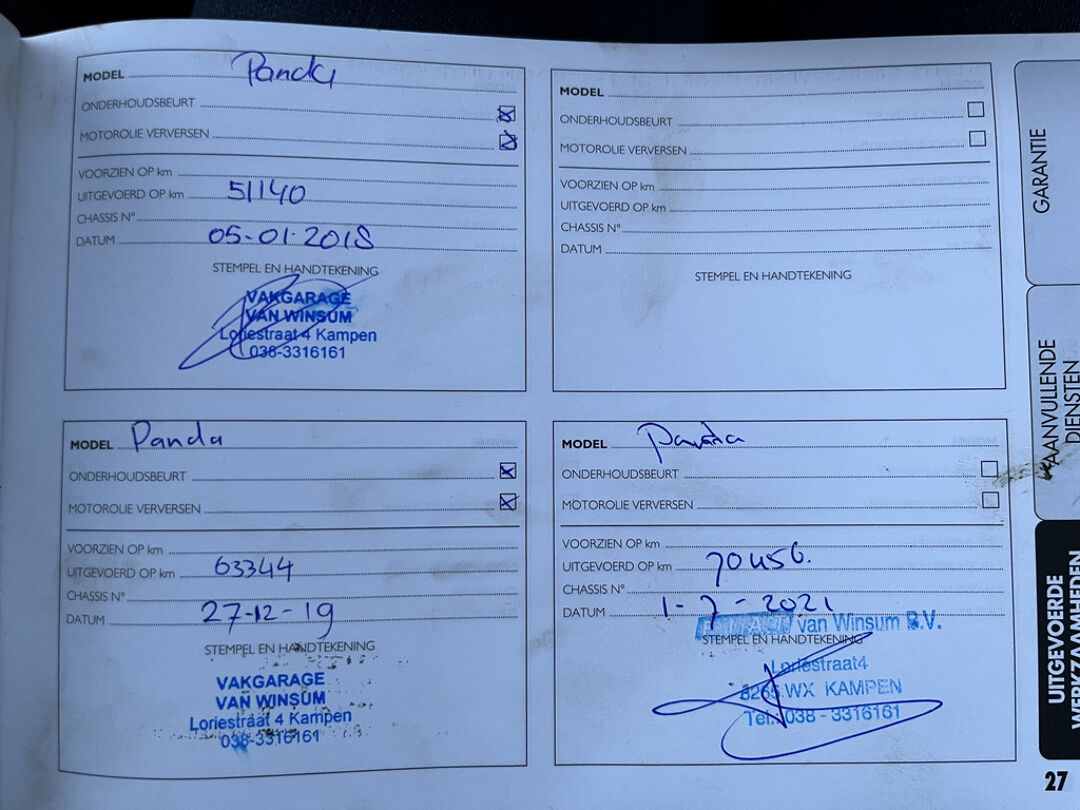 MODEL Panda
ONDERHOUDSBEURT
MOTOROLIE VERVERSEN
VOORZIEN OP km
UITGEVOERD OP km 51140
CHASSIS N°
DATUM 05-01-2018
STEMPEL EN HANDTEKENING
VAKGARAGE
VAN WINSUM
Loriestraat 4 Kampen
038-3316161
MODEL
ONDERHOUDSBEURT
MOTOROLIE VERVERSEN
VOORZIEN OP km
UITGEVOERD OP km
CHASSIS N°
DATUM
STEMPEL EN HANDTEKENING
MODEL Panda
ONDERHOUDSBEURT
MOTOROLIE VERVERSEN
VOORZIEN OP km
UITGEVOERD OP km 63344
CHASSIS N°
DATUM 27-12-19
STEMPEL EN HANDTEKENING
VAKGARAGE
VAN WINSUM
Loriestraat 4 Kampen
038-3316161
MODEL Panda
ONDERHOUDSBEURT
MOTOROLIE VERVERSEN
VOORZIEN OP km
UITGEVOERD OP km 70456.
CHASSIS N°
DATUM 1-7-2021
van Winsum B.V.
STEMPEL EN HANDTEKENING
Loriestraat4
8265 WX KAMPEN
Tel.: 038 - 3316161
GARANTIE
AANVULLENDE
DIENSTEN
UITGEVOERDE
WERKZAAMHEDEN
27